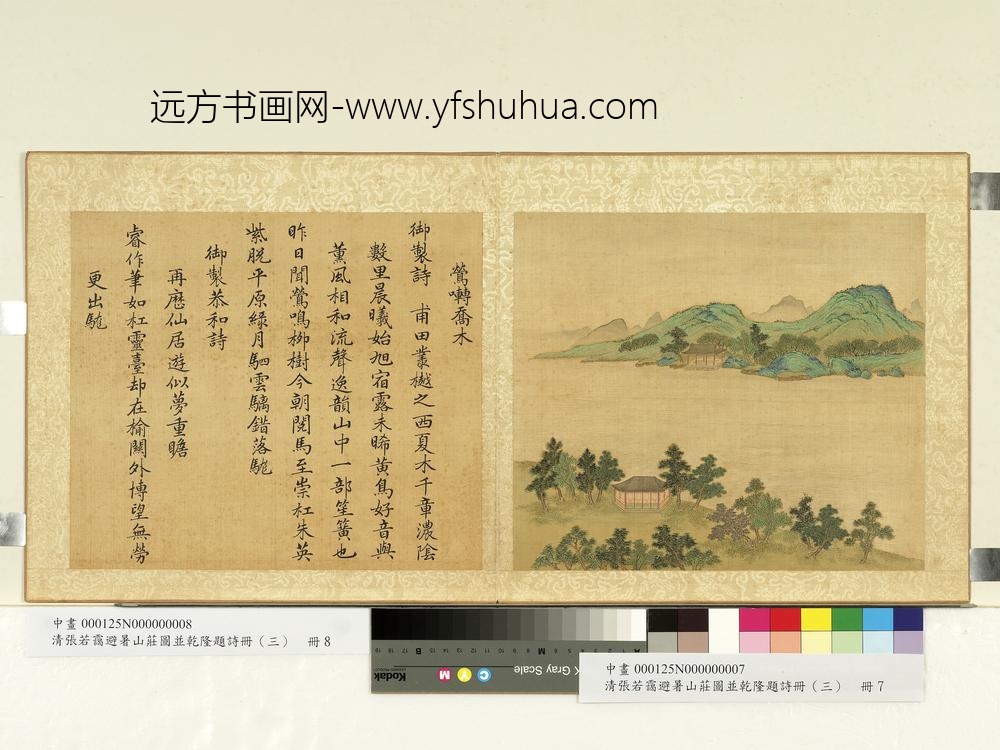 远方书画网-www.yfshuhua.com
鶯囀喬木
御製詩 甫田叢樾之西夏木千章濃陰
數里晨曦始旭宿露未晞黃鳥好音與
薰風相和流聲逸韻山中一部笙簧也
昨日聞鶯鳴柳樹今朝閱馬至崇杠朱英
紫脫平原綠月駟雲驕錯落駹
御製恭和詩
再歷仙居遊似夢重瞻
睿作筆如杠靈臺却在榆關外博望無勞
更出駹
中畫 000125N000000008
清張若靄避暑山莊圖並乾隆題詩冊（三） 冊 8
中畫 000125N000000007
清張若靄避暑山莊圖並乾隆題詩冊（三） 冊 7
Kodak
K Gray Scale
C
Y
M